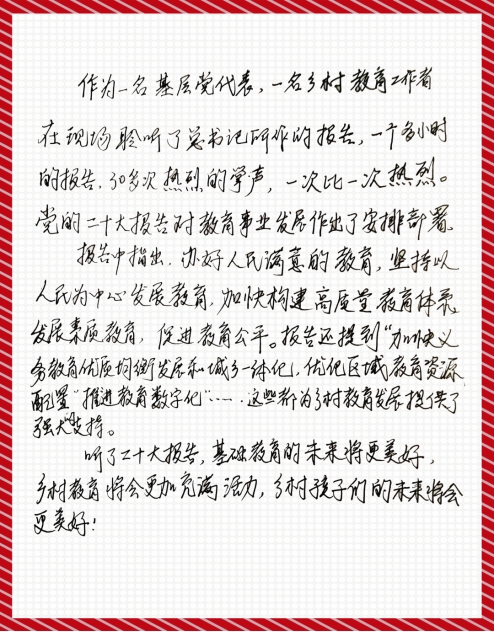 作为一名基层党代表，一名乡村教育工作者
在现场聆听了总书记所作的报告，一个多小时
的报告，30多次热烈的掌声，一次比一次热烈。
党的二十大报告对教育事业发展作出了安排部署。
报告中指出，办好人民满意的教育，坚持以
人民为中心发展教育，加快构建高质量教育体系
发展素质教育，促进教育公平。报告还提到“加快义
务教育优质均衡发展和城乡一体化，优化区域教育资源
配置”“推进教育数字化”……这些都为乡村教育发展提供了
强大支持。
听了二十大报告，基础教育的未来将更美好，
乡村教育将会更加充满活力，乡村孩子们的未来将会
更美好！